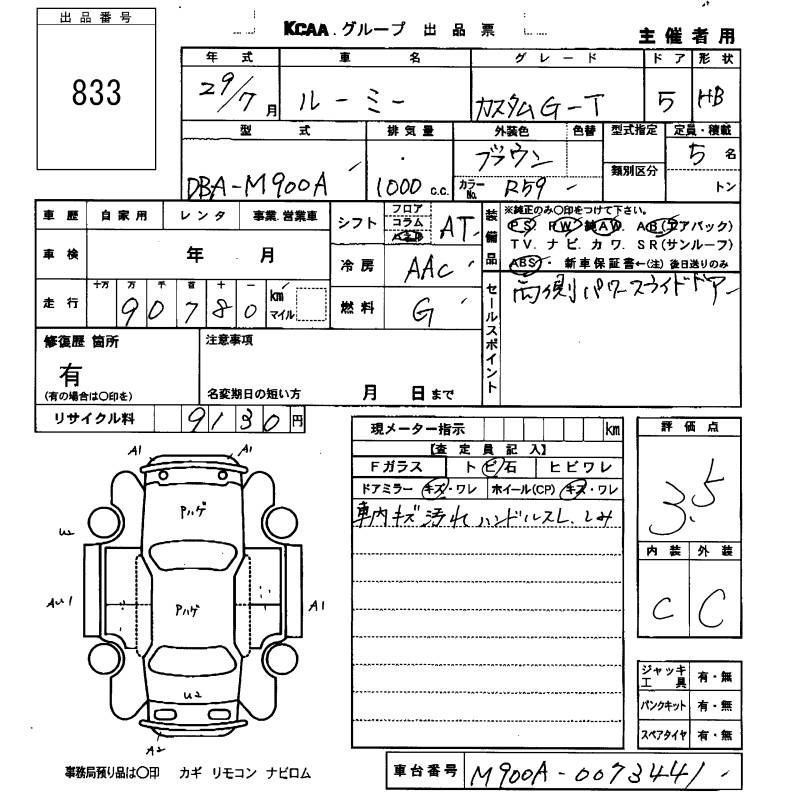 出品番号
833
KCAA.グループ 出品票
主催者用
年式 車名 グレード ドア 形状
29/7月 ルーミー カスタムG-T 5 HB
型式 排気量 外装色 色替 型式指定 定員・積載
DBA-M900A 1000 c.c. ブラウン 類別区分 5名
カラーNo. R59 トン
車歴 自家用 レンタ 事業.営業車
車検 年 月
走行 十万 万 千 百 十 一
90780 km マイル
シフト フロア コラム AT
冷房 AAC
燃料 G
装備品
※純正のみ〇印をつけて下さい。
PS. PW. 純AW. AB(エアバック)
TV. ナビ. カワ. SR(サンルーフ)
ABS・ 新車保証書←(注) 後日送りのみ
セールスポイント
両側パワースライドドアー
修復歴 箇所
有
(有の場合は〇印を)
注意事項
名変期日の短い方 月 日まで
リサイクル料 9130円
現メーター指示 km
【査定員記入】
Fガラス トビ石 ヒビワレ
ドアミラー キズ・ワレ ホイール(CP) キズ・ワレ
車内キズ汚れ ハンドルスレ しみ
評価点
3.5
内装 外装
C C
A1 A1
Pハゲ
U2
AU1 Pハゲ A1
U2
A2
ジャッキ工具 有・無
パンクキット 有・無
スペアタイヤ 有・無
事務局預り品は〇印 カギ リモコン ナビロム
車台番号 M900A-0073441